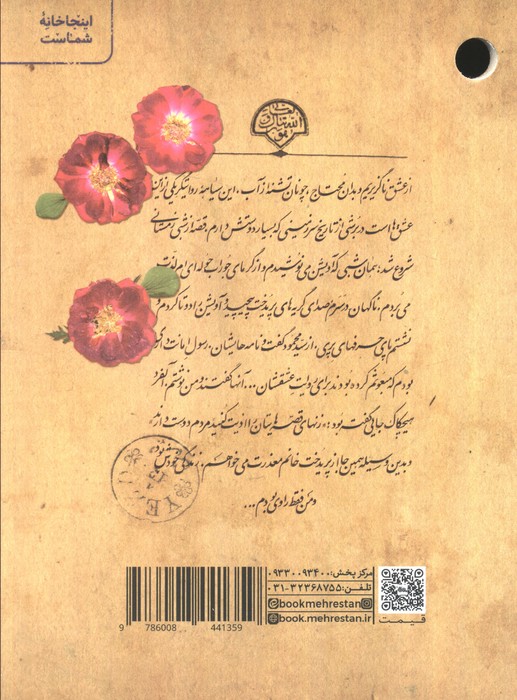 اینجا خانهٔ
شماست
از عشق ناگزیریم و بدان محتاج، چونان تشنه از آب، این سیاهه روایتگر یکی از این
عشق‌هاست در برشی از تاریخ سرزمینی که بسیار دوستش دارم، قصه از شبی زمستانی
شروع شد؛ همان شبی که آویشن می‌نوشیدم و از گرمای جوراب حوله‌ای‌ام لذت
می‌بردم. ناگهان در سرم صدای گریه‌های پریدخت پیچید و آویشن را دو تا کردم و
نشستم پای حرفهای پری، از سید محمود گفت و نامه‌هایشان، رسول امانت‌داری
بودم که مبعوثم کرده بودند برای روایت عشقشان... آنها گفتند و من نوشتم. آلفرد
هیچکاک جایی گفت بود: «زنهای قصه‌هایتان را اذیت کنید مردم دوست دارند»
و بدین وسیله همین جا از پریدخت خانم معذرت می‌خواهم... زندگی خودش بود
و من فقط راوی بودم...
مرکز پخش: ۰۹۳۳۰۰۹۳۴۰۰
تلفن: ۰۳۱-۳۲۳۶۸۷۵۵
@bookmehrestan
book.mehrestan.ir
قیمت
9 786008 441359